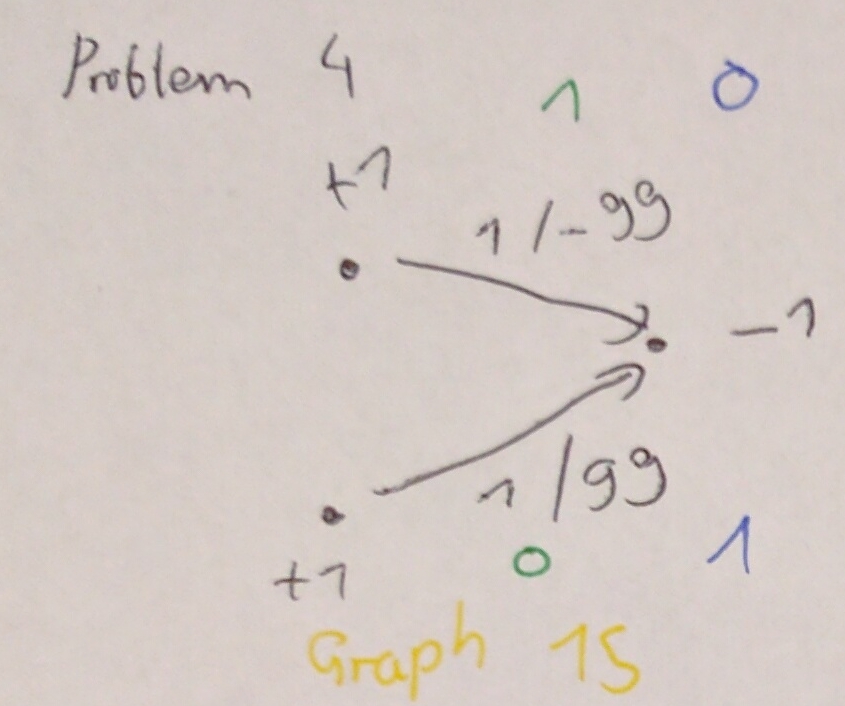 Problem 4
1 0
+1
1/-99
-1
1/99
0 1
+1
Graph 15